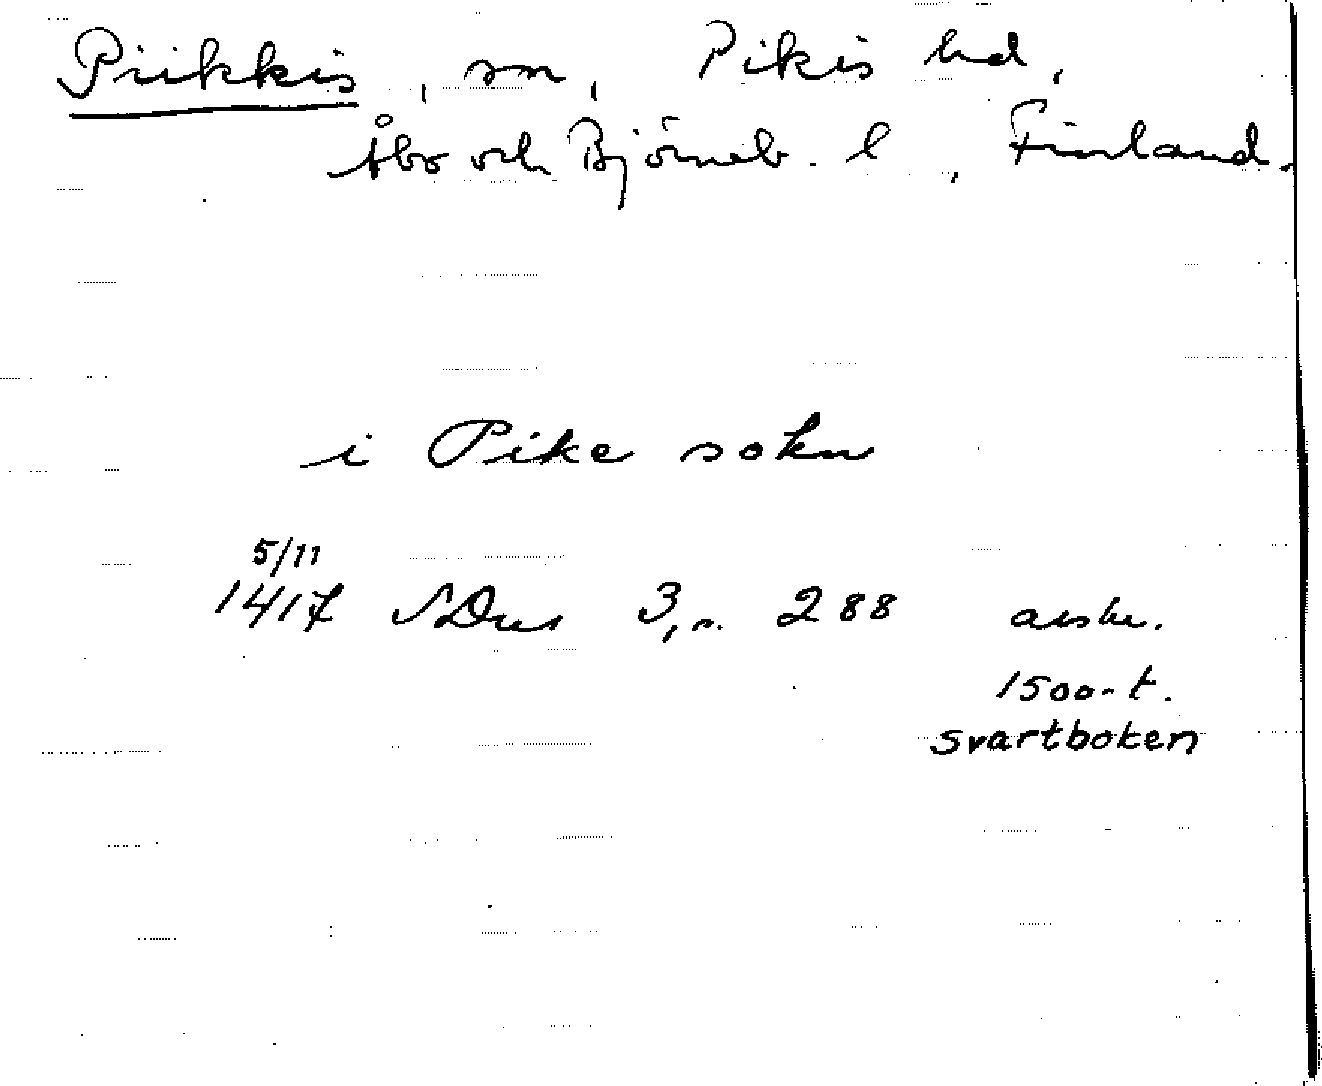 Piikkis, sn, Pikis hd,
Åbo och Björneb. l, Finland.
i Pike sokn
5/11
1417 SDns 3, s. 288 avskr.
1500-t.
svartboken